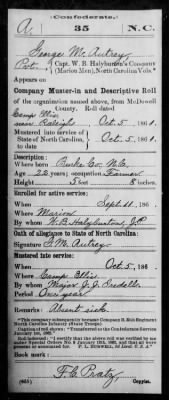 (Confederate.)
A. 35 N.C.
George M. Autrey
Pvt., Capt. W. B. Halyburton's Company
(Marion Men), North Carolina Vols.*
Appears on
Company Muster-in and Descriptive Roll
of the organization named above, from McDowell
County. Roll dated
Camp Ellis
near Raleigh Oct 5, 1861.
Mustered into service of
State of North Carolina, Oct 5, 1861.
to date
Description:
Where born Burke Co. N.C.
Age 22 years; occupation Farmer
Height 5 feet 8 inches.
Enrolled for active service:
When Sept 11, 1861.
Where Marion
By whom W. B. Halyburton, J.P.
Oath of allegiance to State of North Carolina:
Signature G. M. Autrey
Mustered into service:
When Oct 5, 1861
Where Camp Ellis
By whom Major J. J. Iredell
Period One year
Remarks: Absent sick.
*This company subsequently became Company B, 35th Regiment
North Carolina Infantry (State Troops)
Book mark:
F. C. Pratz,
Copyist.